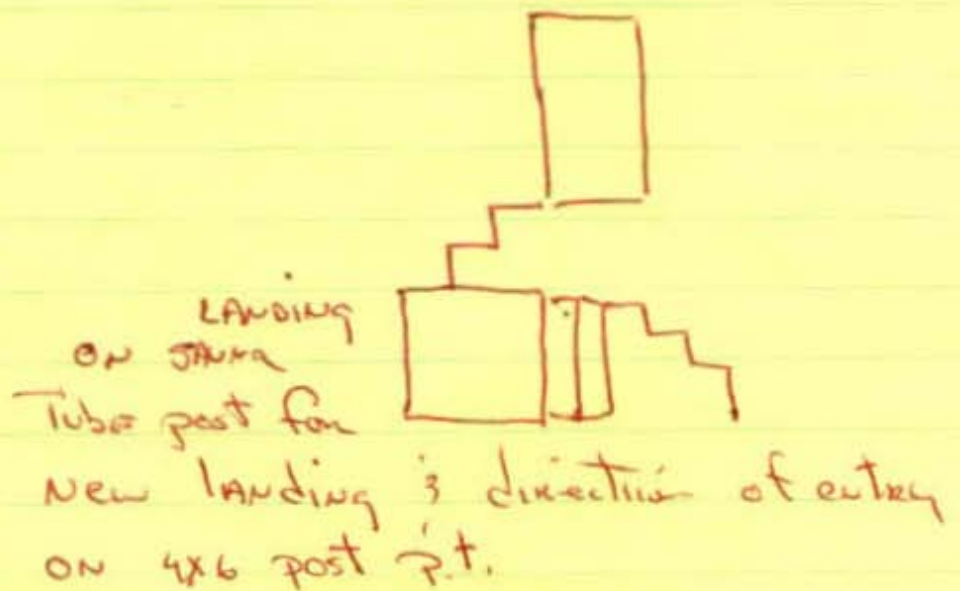 LANDING
ON
Tube post for
New landing & direction of entry
ON 4x6 post p.t.